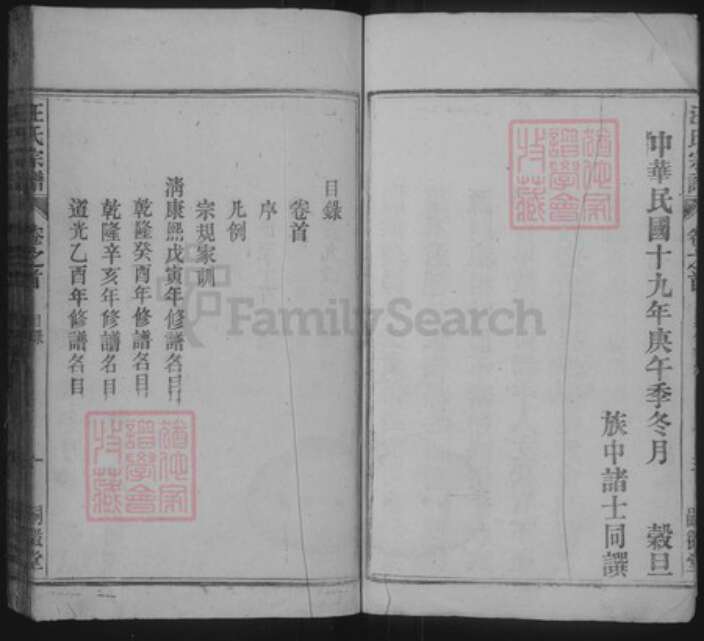 中華民國十九年庚午季冬月 穀旦
族中諸士同譔
汪氏宗譜
卷之首
目錄
卷首
序
凡例
宗規家訓
清康熙戊寅年修譜名目
乾隆癸酉年修譜名目
乾隆辛亥年修譜名目
道光乙酉年修譜名目
汪氏宗譜
卷之首
目錄
一
FamilySearch